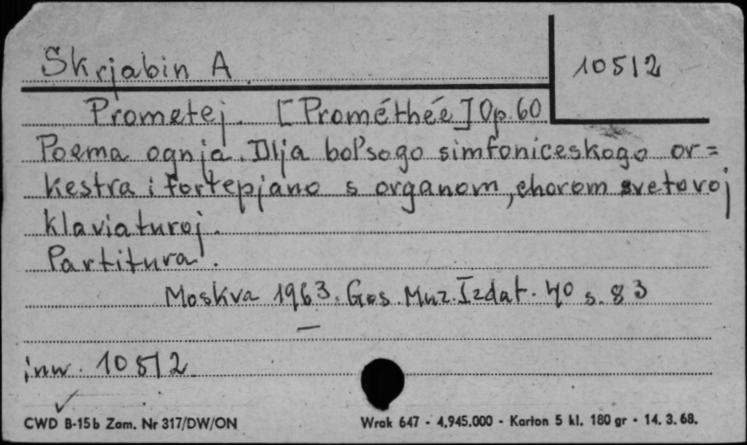 Skrjabin A.
10512
Prometej. [Prométhée] Op. 60
Poema ognja. Dlja bol'sogo simfoniceskogo or=
kestra i fortepjano s organom, chorom svetovoj
klaviaturoj.
Partitura.
Moskva 1963. Gos. Muz. Izdat. 4° s. 83
inw. 10512
CWD B-15b Zam. Nr 317/DW/ON
Wrak 647 - 4.945.000 - Karton 5 kl. 180 gr - 14. 3. 68.